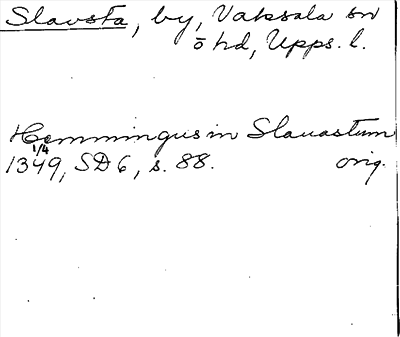 Slavsta, by, Vaksala sn
ö hd, Upps. l.
Hemmingus in Slauastum
1/4
1349, SD 6, s. 88. orig.